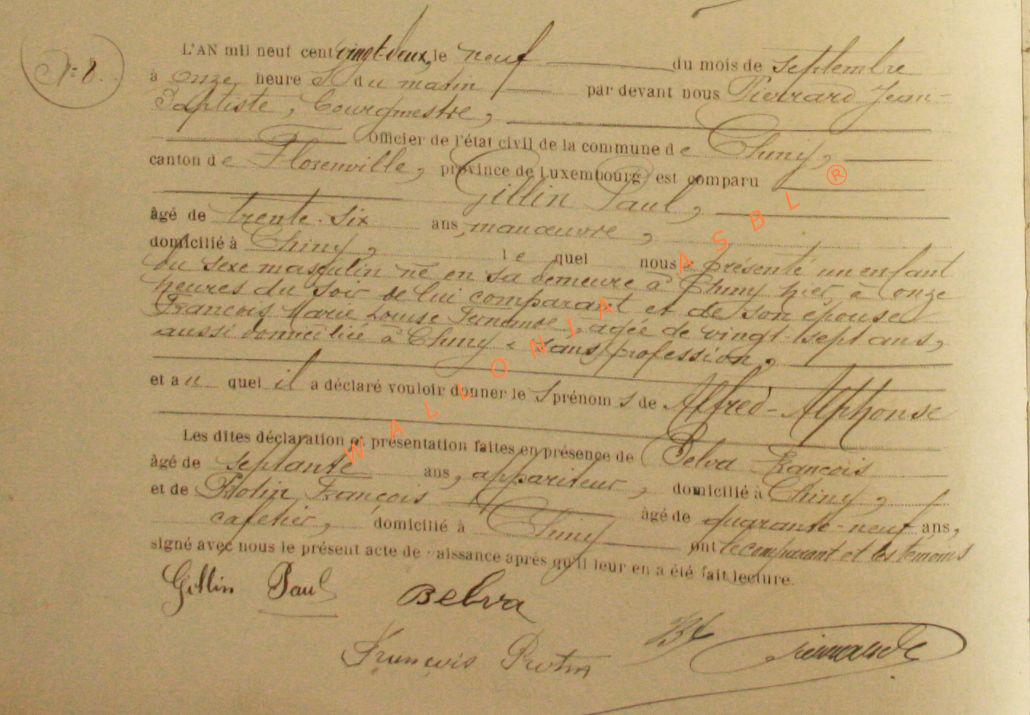 N° 8.
L'AN mil neuf cent vingt-deux, le neuf du mois de septembre
à onze heures du matin par devant nous Pierrard Jean-
Baptiste, Bourgmestre,
Officier de l'état civil de la commune de Chiny,
canton de Florenville, province de Luxembourg est comparu
Gillin Paul,
âgé de trente-six ans, manœuvre,
domicilié à Chiny, lequel nous a présenté un enfant
du sexe masculin né en sa demeure à Chiny hier, à onze
heures du soir de lui comparant et de son épouse
François Marie Louise Fernande, âgée de vingt-sept ans,
aussi domiciliée à Chiny, sans profession,
et au quel il a déclaré vouloir donner les prénoms de Alfred-Alphonse
Les dites déclaration et présentation faites en présence de Belva François
âgé de septante ans, appariteur, domicilié à Chiny,
et de Protin, François âgé de quarante-neuf ans,
cafetier, domicilié à Chiny ont le comparant et les témoins
signé avec nous le présent acte de naissance après qu'il leur en a été fait lecture.
Gillin Paul Belva
François Protin Pierrard
WALLONIA ASBL ®